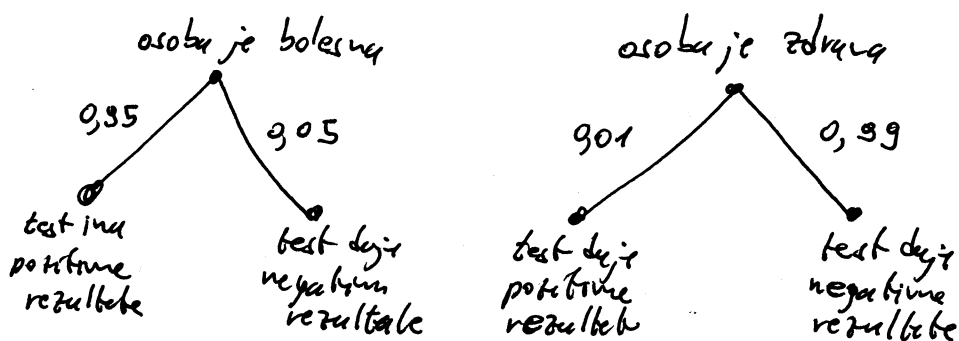 osoba je bolesna
0,95
0,05
test ima
pozitivne
rezultate
test daje
negativne
rezultate
osoba je zdrava
0,01
0,99
test daje
pozitivne
rezultate
test daje
negativne
rezultate